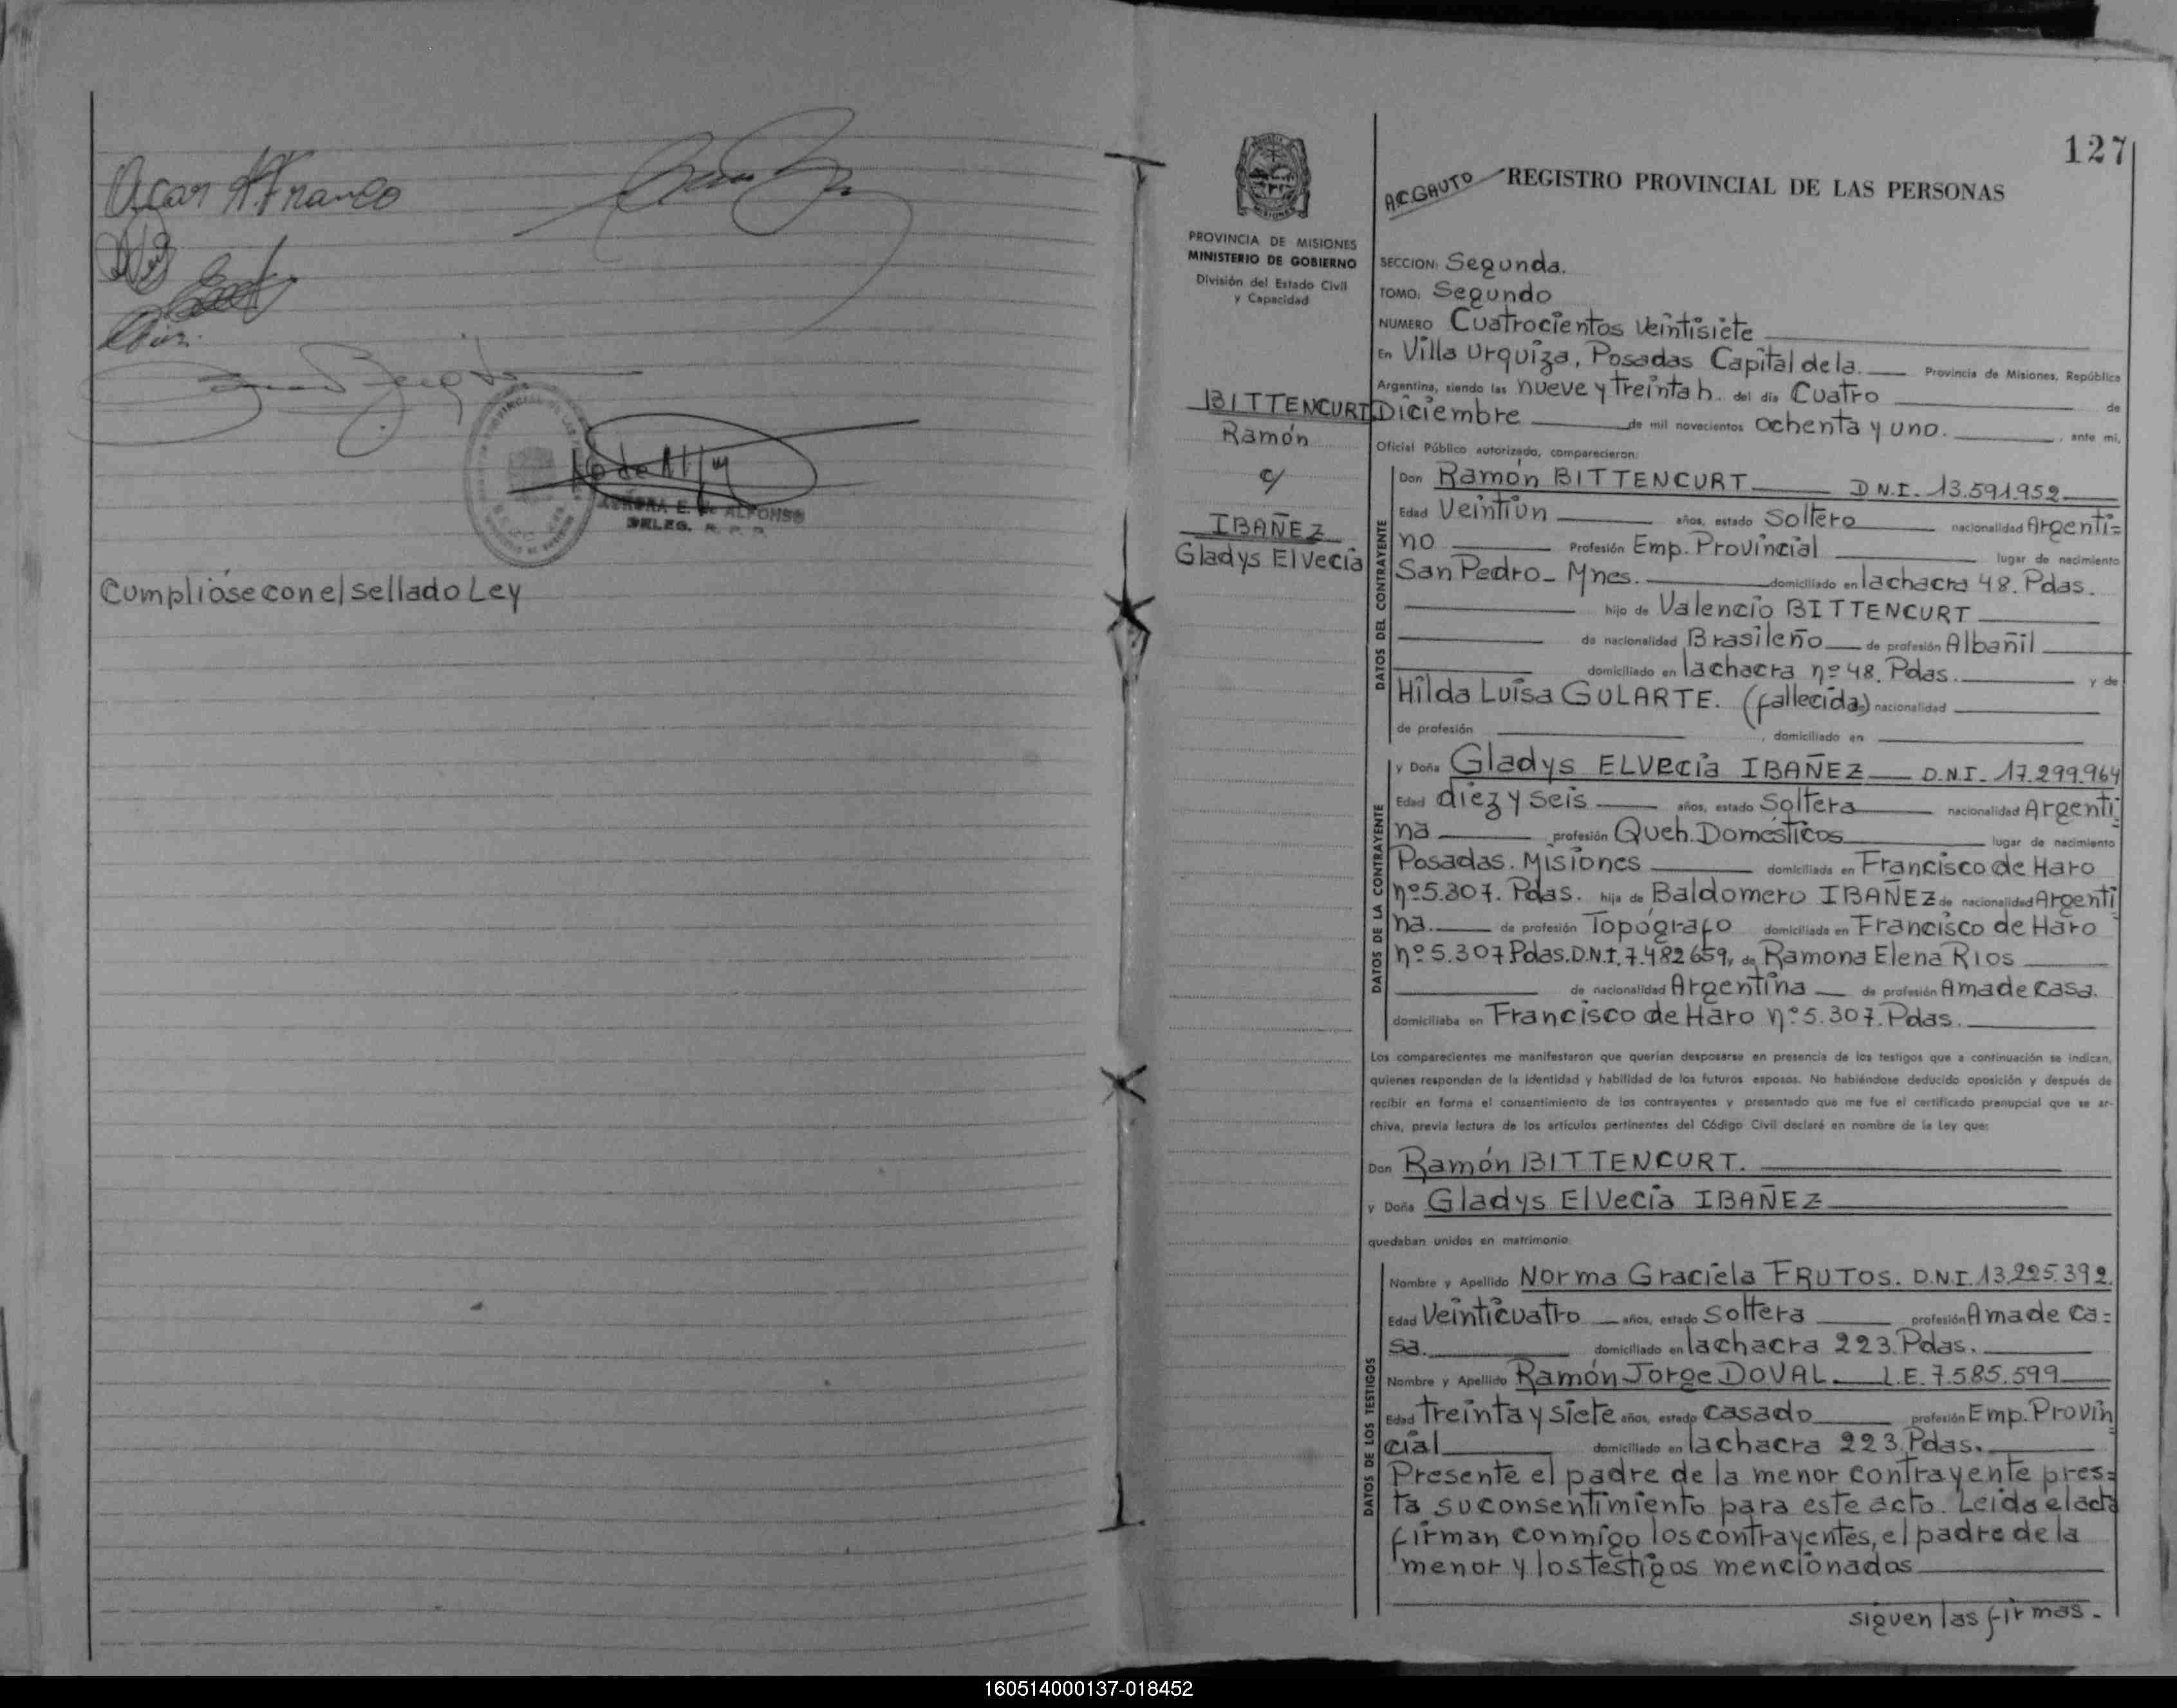 Oscar A. Franco
AURORA E. de ALFONSO
DELEG. R. P. P.
Cumplióse con el sellado Ley
127
AC.GAUTO
REGISTRO PROVINCIAL DE LAS PERSONAS
MISIONES
PROVINCIA DE MISIONES
MINISTERIO DE GOBIERNO
División del Estado Civil
y Capacidad
BITTENCURT
Ramón
c/
IBAÑEZ
Gladys Elvecia
SECCION: Segunda.
TOMO: Segundo
NUMERO Cuatrocientos veintisiete
En Villa Urquiza, Posadas Capital de la. Provincia de Misiones, República
Argentina, siendo las nueve y treinta h. del día Cuatro de
Diciembre de mil novecientos ochenta y uno. , ante mí,
Oficial Público autorizado, comparecieron:
DATOS DEL CONTRAYENTE
Don Ramón BITTENCURT D.N.I. 13.591.952
Edad Veintiún años, estado Soltero nacionalidad Argenti=
no Profesión Emp. Provincial lugar de nacimiento
San Pedro - Mnes. domiciliado en la chacra 48. Pdas.
hijo de Valencio BITTENCURT
de nacionalidad Brasileño de profesión Albañil
domiciliado en la chacra nº 48. Pdas. y de
Hilda Luisa GULARTE. (fallecida) nacionalidad
de profesión , domiciliado en
DATOS DE LA CONTRAYENTE
y Doña Gladys ELVECIA IBAÑEZ D.N.I. 17.299.964
Edad diez y seis años, estado Soltera nacionalidad Argenti=
na profesión Queh. Domésticos lugar de nacimiento
Posadas. Misiones domiciliada en Francisco de Haro
nº 5.307. Pdas. hija de Baldomero IBAÑEZ de nacionalidad Argenti
na. de profesión Topógrafo domiciliado en Francisco de Haro
nº 5.307 Pdas. D.N.I. 7.482659, de Ramona Elena RIOS
de nacionalidad Argentina de profesión Ama de casa.
domiciliaba en Francisco de Haro nº 5.307. Pdas.
Los comparecientes me manifestaron que querían desposarse en presencia de los testigos que a continuación se indican,
quienes responden de la identidad y habilidad de los futuros esposos. No habiéndose deducido oposición y después de
recibir en forma el consentimiento de los contrayentes y presentado que me fue el certificado prenupcial que se ar-
chiva, previa lectura de los artículos pertinentes del Código Civil declaré en nombre de la Ley que:
Don Ramón BITTENCURT.
y Doña Gladys Elvecia IBAÑEZ
quedaban unidos en matrimonio
DATOS DE LOS TESTIGOS
Nombre y Apellido Norma Graciela FRUTOS. D.N.I. 13.225.392.
Edad Veinticuatro años, estado soltera profesión Ama de ca=
sa. domiciliado en la chacra 223. Pdas.
Nombre y Apellido Ramón Jorge DOVAL. L.E. 7.585.599
Edad treinta y siete años, estado casado profesión Emp. Provin
cial domiciliado en la chacra 223. Pdas.
Presente el padre de la menor contrayente pres=
ta su consentimiento para este acto. Leida el acta
firman conmigo los contrayentes, el padre de la
menor y los testigos mencionados
siguen las firmas.
160514000137-018452